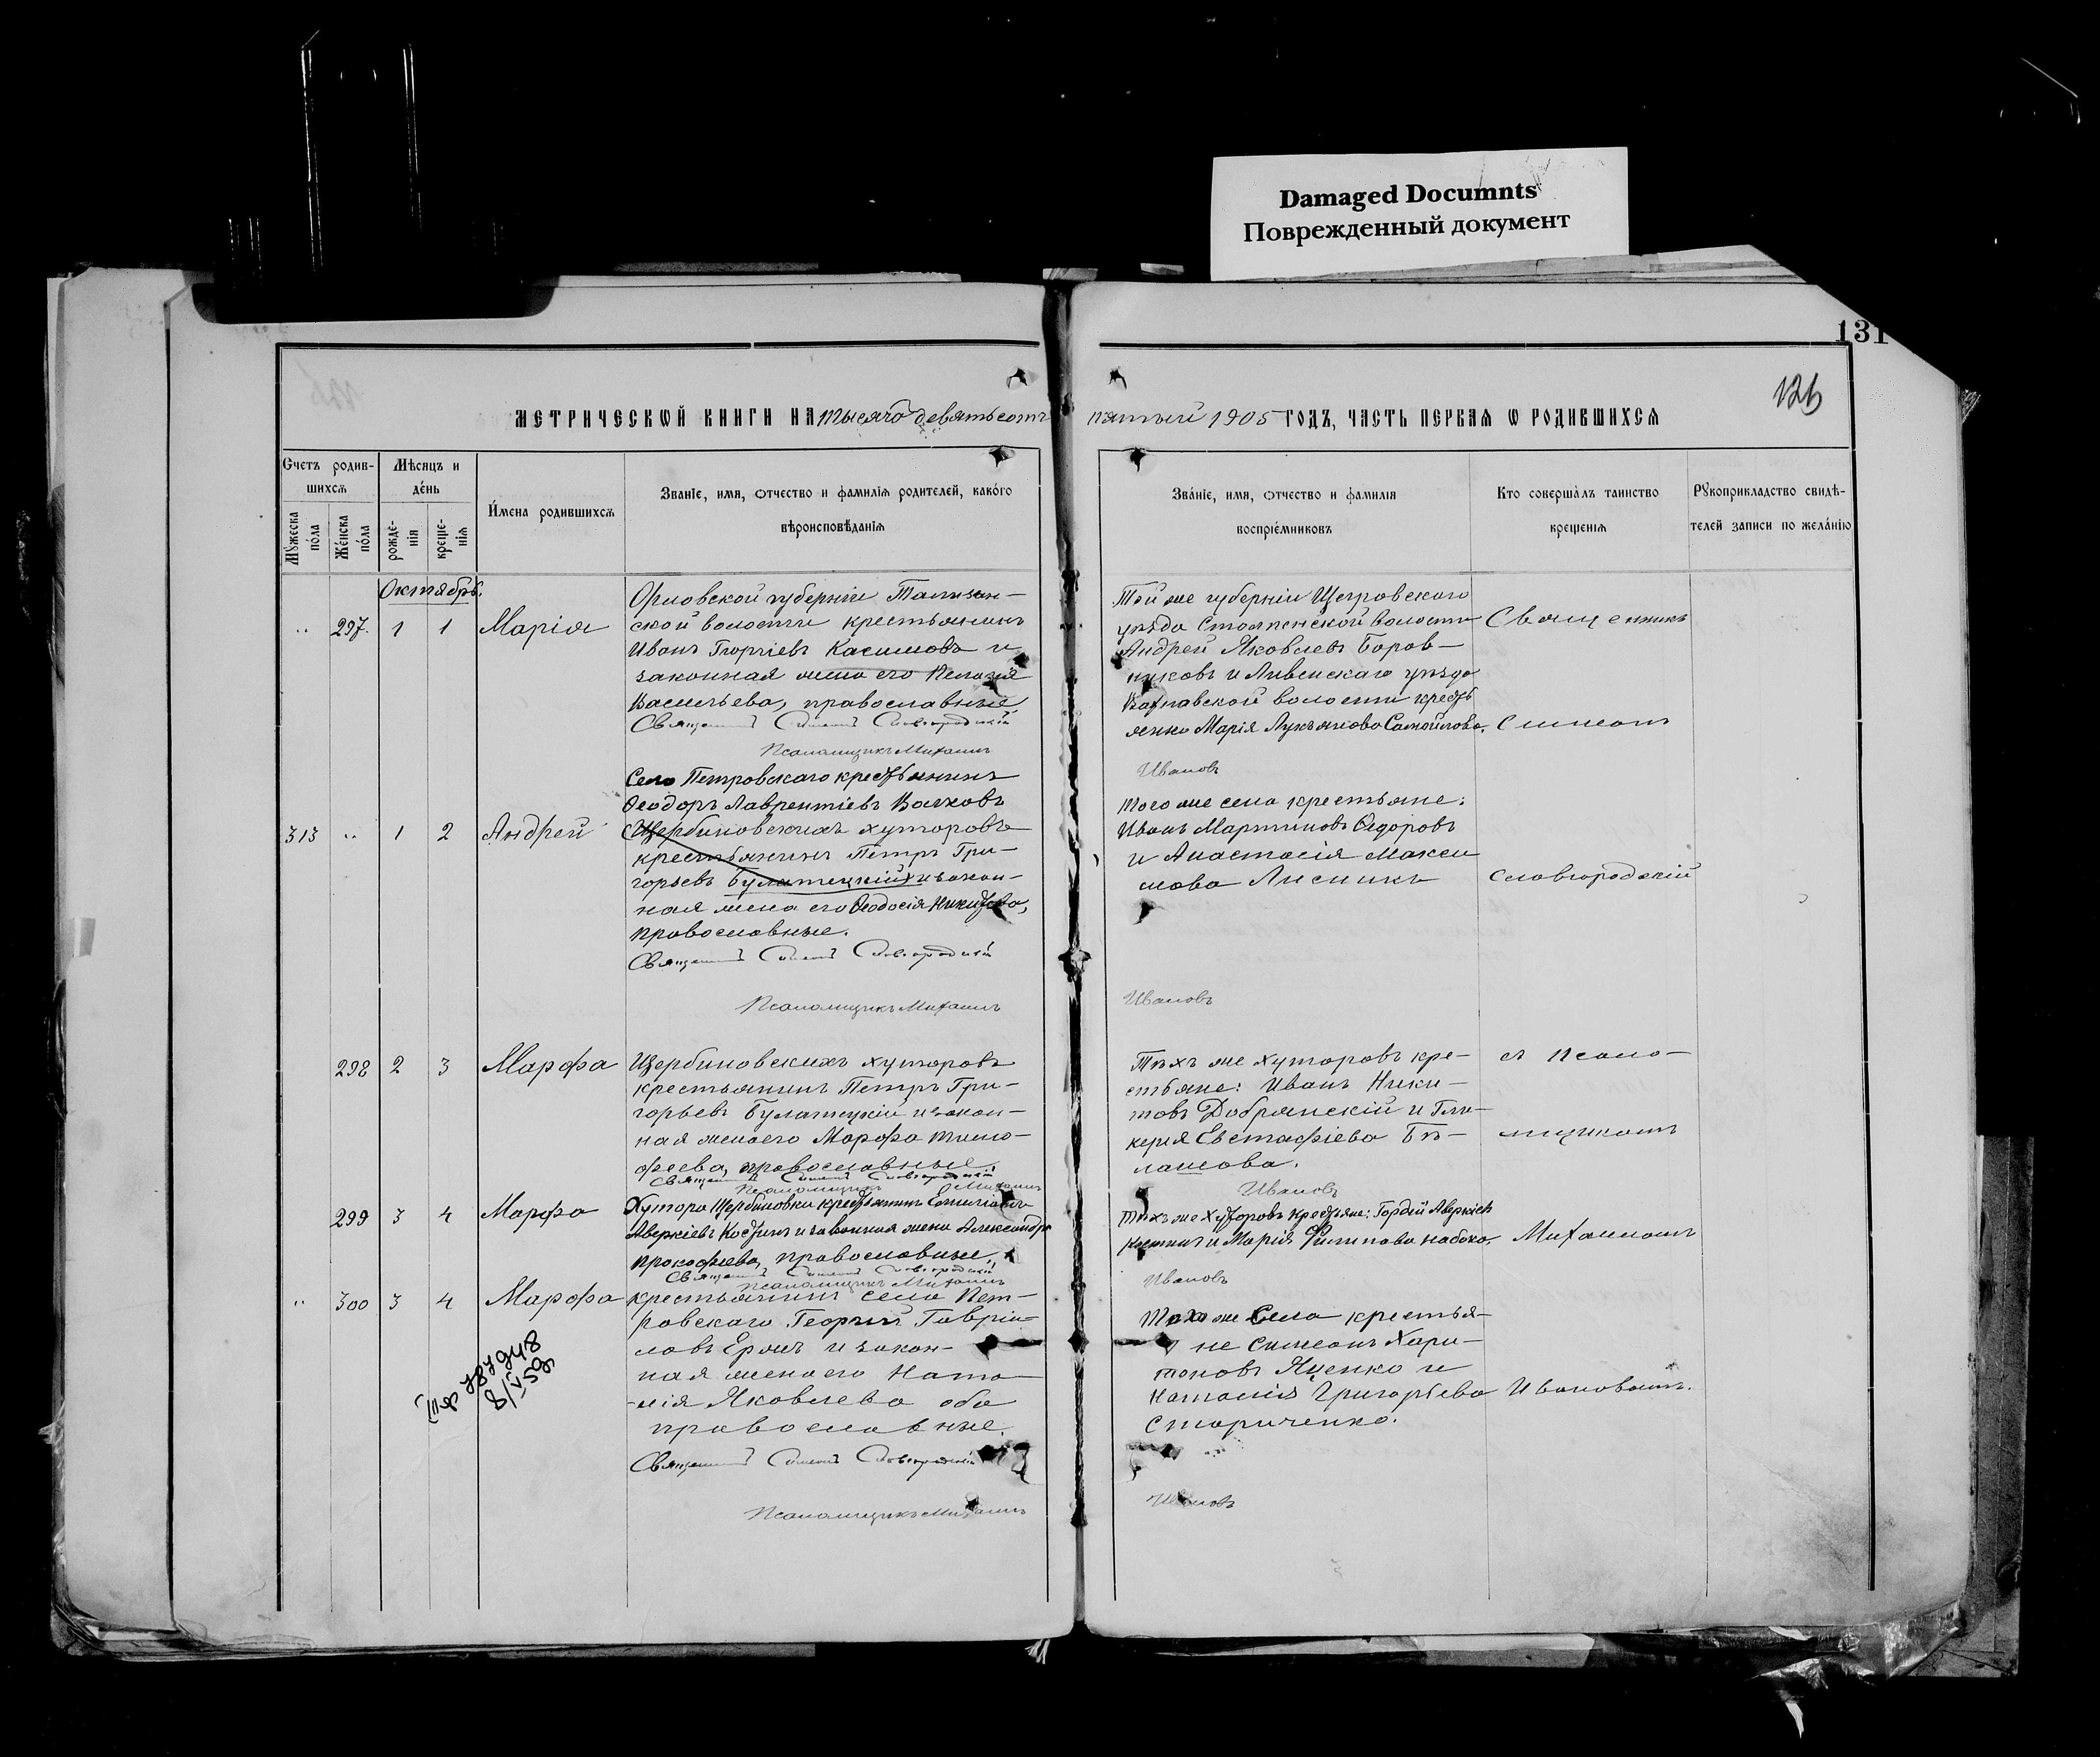 Damaged Documnts
Поврежденный документ
131
126
МЕТРИЧЕСКОЙ КНИГИ НА тысяча девятьсотъ пятый 1905 ГОДЪ, ЧАСТЬ ПЕРВАЯ Ѡ РОДИВШИХСЯ
Счетъ родив-
шихся
Мꙋжеска
пола
Женска
пола
Мѣсяцъ и
день
рожде-
нія
креще-
нія
Имена родившихся
Званіе, имя, отчество и фамилія родителей, какого
вѣроисповѣданія
Званіе, имя, отчество и фамилія
воспріемниковъ
Кто совершалъ таинство
крещенія
Рꙋкоприкладство свидѣ-
телей записи по желанію
Октябрь.
297. 1 1 Марія
Орловской губерніи
ской волости крестьянинъ
Иванъ Георгіевъ Касимовъ и
законная жена его Пелагія
Васильева, православные
Священникъ Симеонъ Словгородскій
Псаломщикъ Михаилъ Ивановъ
Той же губерніи Щегровскаго
уѣзда волости
Андрей Яковлевъ Боров-
никовъ и Ливенскаго уѣзда
волости кресть
янка Марія Лукьянова Самойлова.
Священникъ
Симеонъ
313 1 2 Андрей
Села Петровскаго крестьянинъ
Ѳеодоръ Лаврентіевъ Волковъ
Щербиновскихъ хуторовъ
крестьянинъ Петръ Гри-
горьевъ Булатецкій и закон-
ная жена его Ѳеодосія Никитова,
православные.
Священникъ Симеонъ Словгородскій
Псаломщикъ Михаилъ Ивановъ
того же села крестьяне:
Иванъ Мартиновъ Ѳедоровъ
и Анастасія Макси
мова Лисникъ
Словгородскій
298 2 3 Марфа
Щербиновскихъ хуторовъ
крестьянинъ Петръ Гри-
горьевъ Булатецкій и закон-
ная жена его Марфа Тимо-
феева, православные
Священникъ Симеонъ Словгородскій
Псаломщикъ Михаилъ Ивановъ
Тѣхъ же хуторовъ кре-
стьяне: Иванъ Ники-
товъ Добрянскій и Гли-
керія Евстафіева Бѣ-
лашова.
съ псало-
мщикомъ
299 3 4 Марфа
Хутора Щербиновки крестьянинъ
Аверкіевъ Костинъ и законная жена Александра
Прокофіева, православные
Священникъ Симеонъ Словгородскій
Псаломщикъ Михаилъ Ивановъ
Тѣхъ же Хуторовъ крестьяне: Гордій Аверкіевъ
Костинъ и Марія Филипова Набока.
Михаиломъ
300 3 4 Марфа
крестьянинъ села Пет-
ровскаго Георгій Гавріи-
ловъ и закон-
ная жена его Ната-
лія Яковлева оба
православные.
Священникъ Симеонъ Словгородскій
Псаломщикъ Михаилъ Ивановъ
Того же Села крестья-
не Симеонъ Хари-
тоновъ Яценко и
Наталія Григорьева
Стариченко.
Ивановымъ.
787948
8/V 59